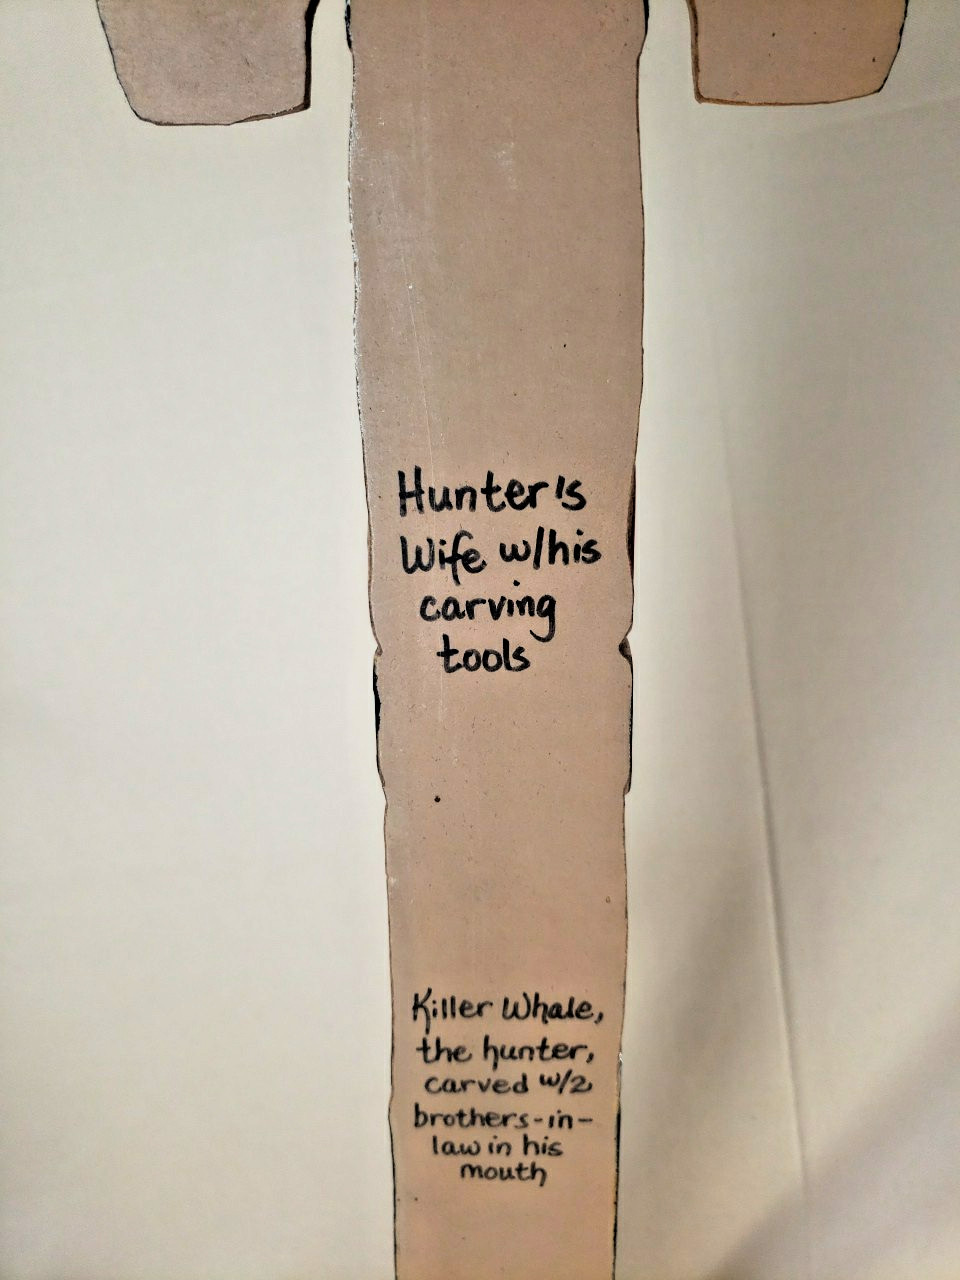 Hunter's
Wife w/his
carving
tools
Killer Whale,
the hunter,
carved w/2
brothers-in-
law in his
mouth